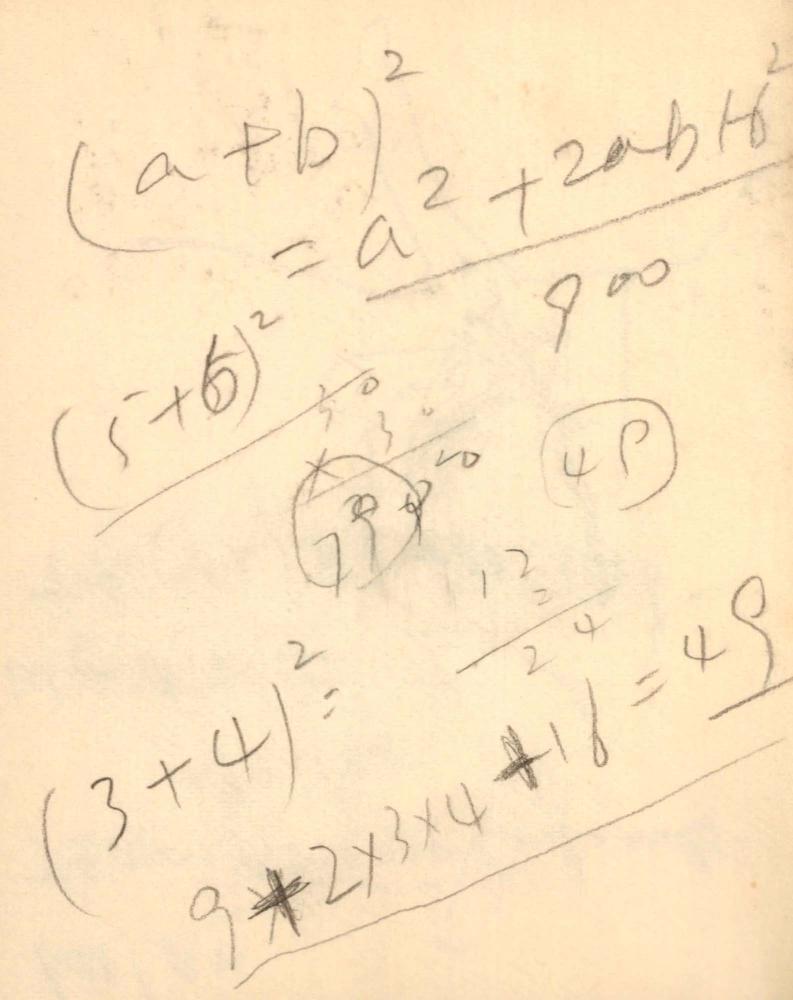 (a+b)²
= a² + 2ab+b²
900
(5+6)²
30
× 30
49
12
24
(3+4)² =
9+2×3×4+16 = 49